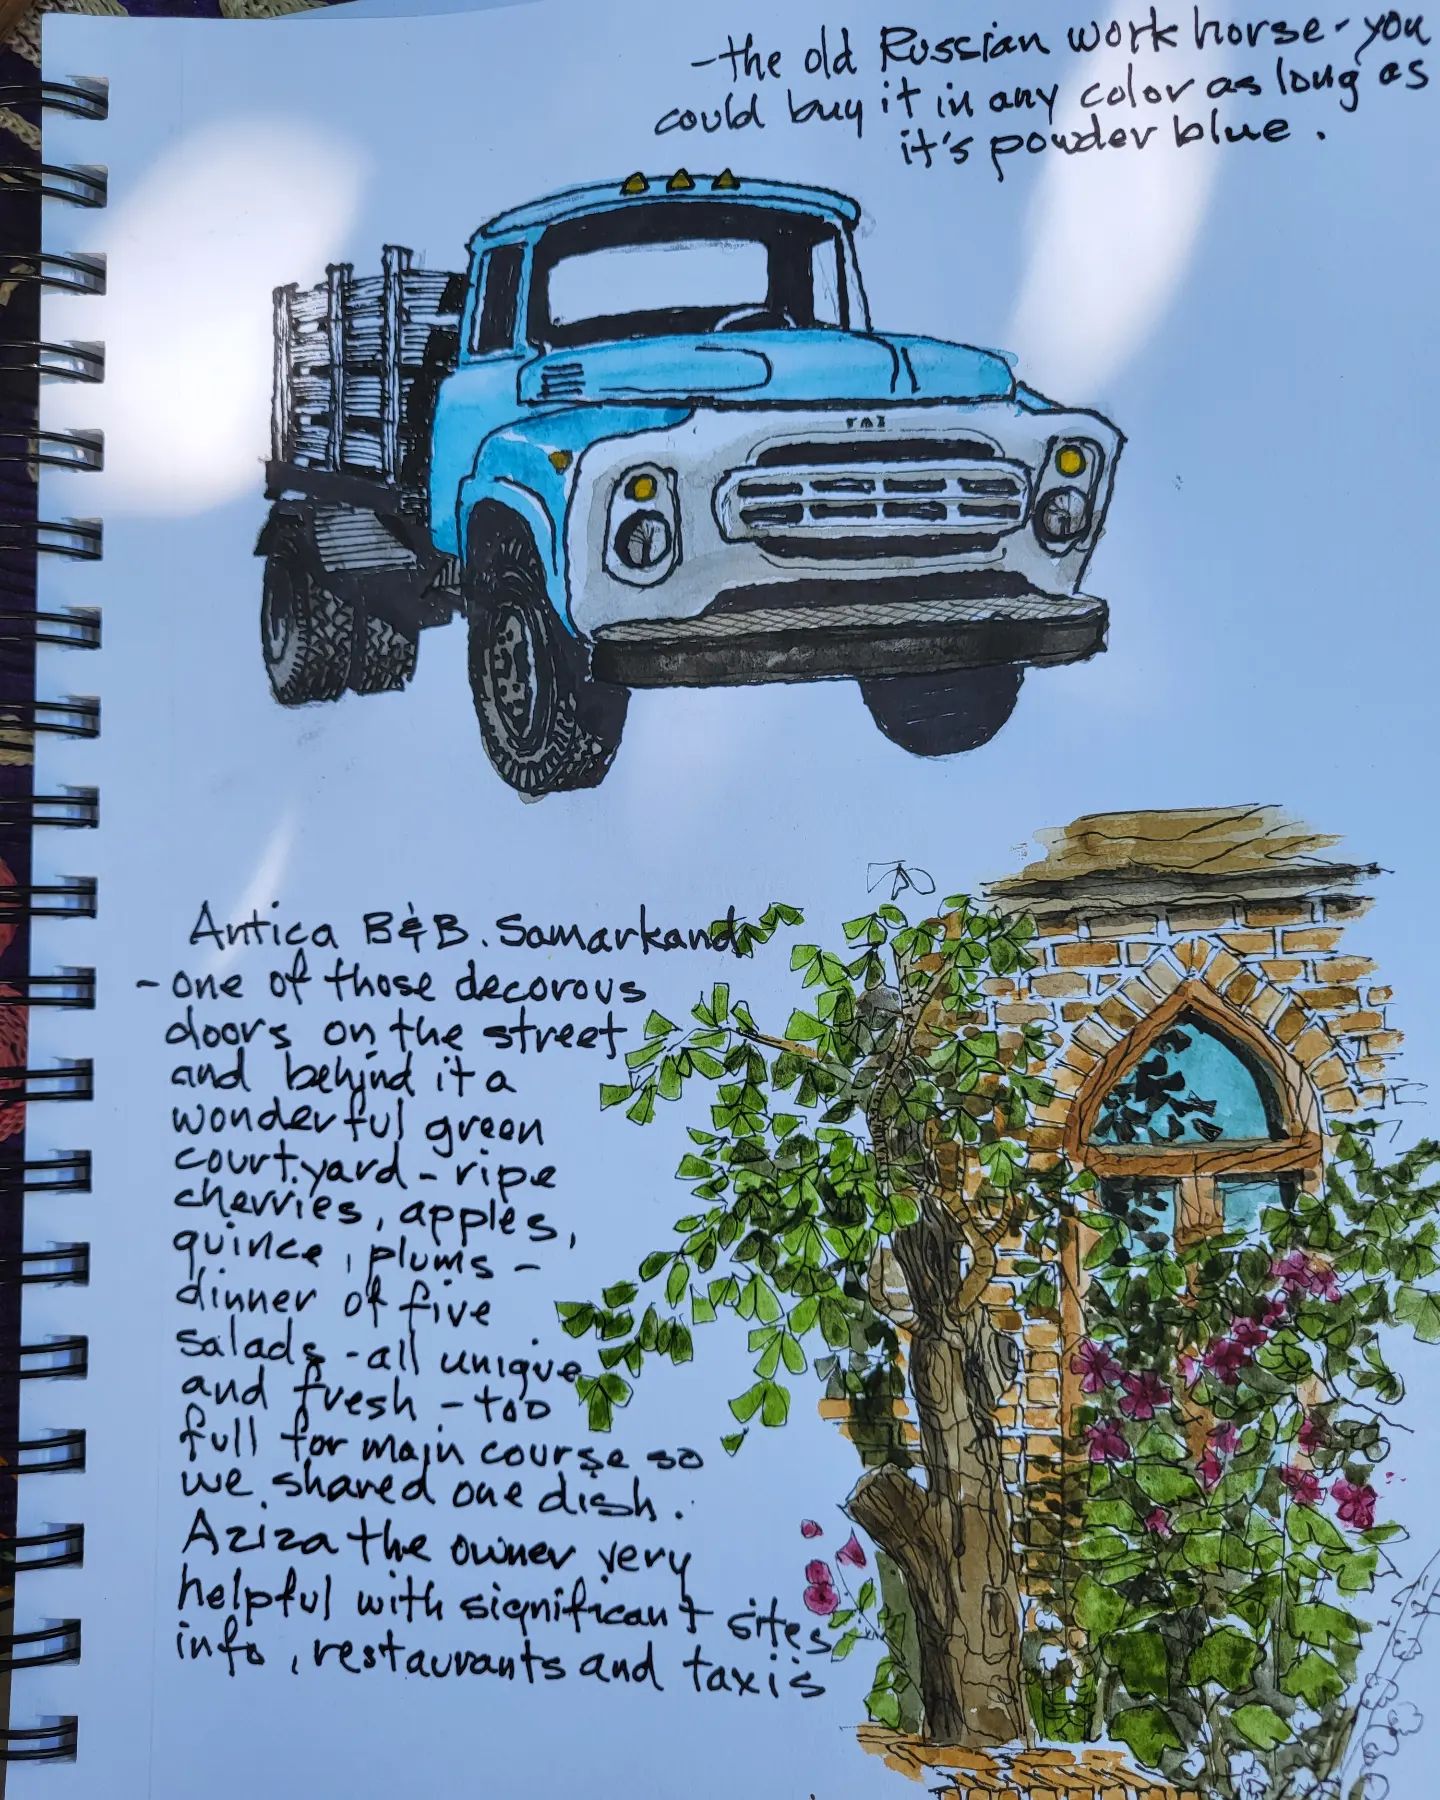 -the old Russian work horse - you
could buy it in any color as long as
it's powder blue.
ГАЗ
Antica B&B. Samarkand
- one of those decorous
doors on the street
and behind it a
wonderful green
courtyard - ripe
cherries, apples,
quince, plums -
dinner of five
salads - all unique
and fresh - too
full for main course so
we shared one dish.
Aziza the owner very
helpful with significant sites
info, restaurants and taxis